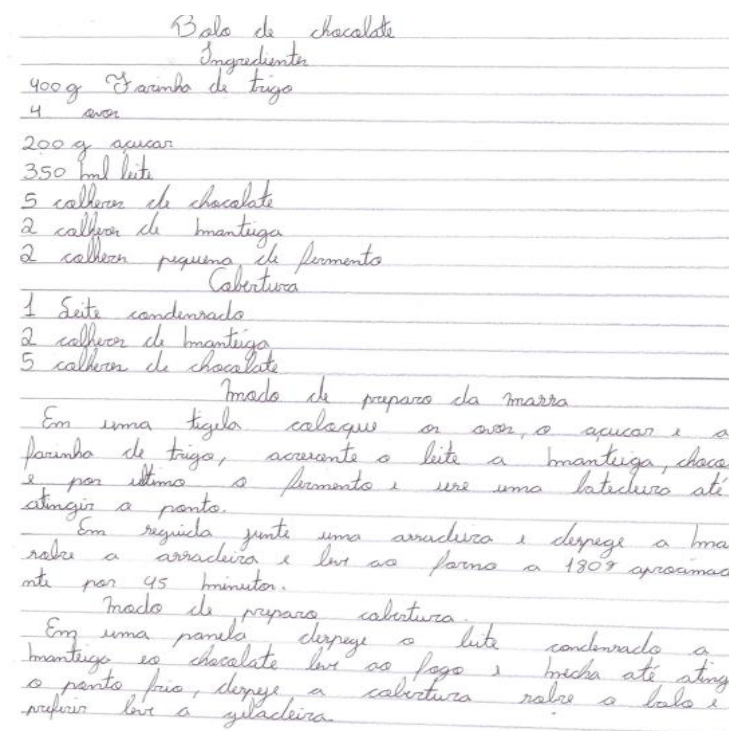 Bolo de chocolate
Ingredientes
400 g Farinha de trigo
4 ovos
200 g açucar
350 ml leite
5 colheres de chocolate
2 colheres de manteiga
2 colheres pequena de fermento
Cobertura
1 Leite condensado
2 colheres de manteiga
5 colheres de chocolate
Modo de preparo da massa
Em uma tigela coloque os ovos, o açucar e a
farinha de trigo, acrescente o leite a manteiga, choco
e por ultimo o fermento e use uma batedeira até
atingir o ponto.
Em seguida junte uma assadeira e despege a ma
sobre a assadeira e leve ao forno a 180º aproximad
nte por 45 minutos.
Modo de preparo cobertura.
Em uma panela despege o leite condensado a
manteiga eo chocolate leve ao fogo e mecha até ating
o ponto frio, despeje a cobertura sobre o bolo e
preferir leve a geladeira.